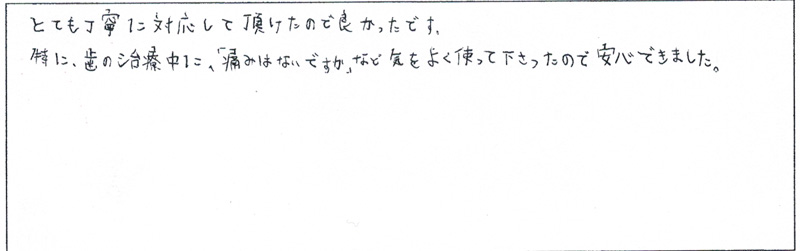 とても丁寧に対応して頂けたので良かったです。
特に、歯の治療中に、「痛みはないですか」など気をよく使って下さったので安心できました。